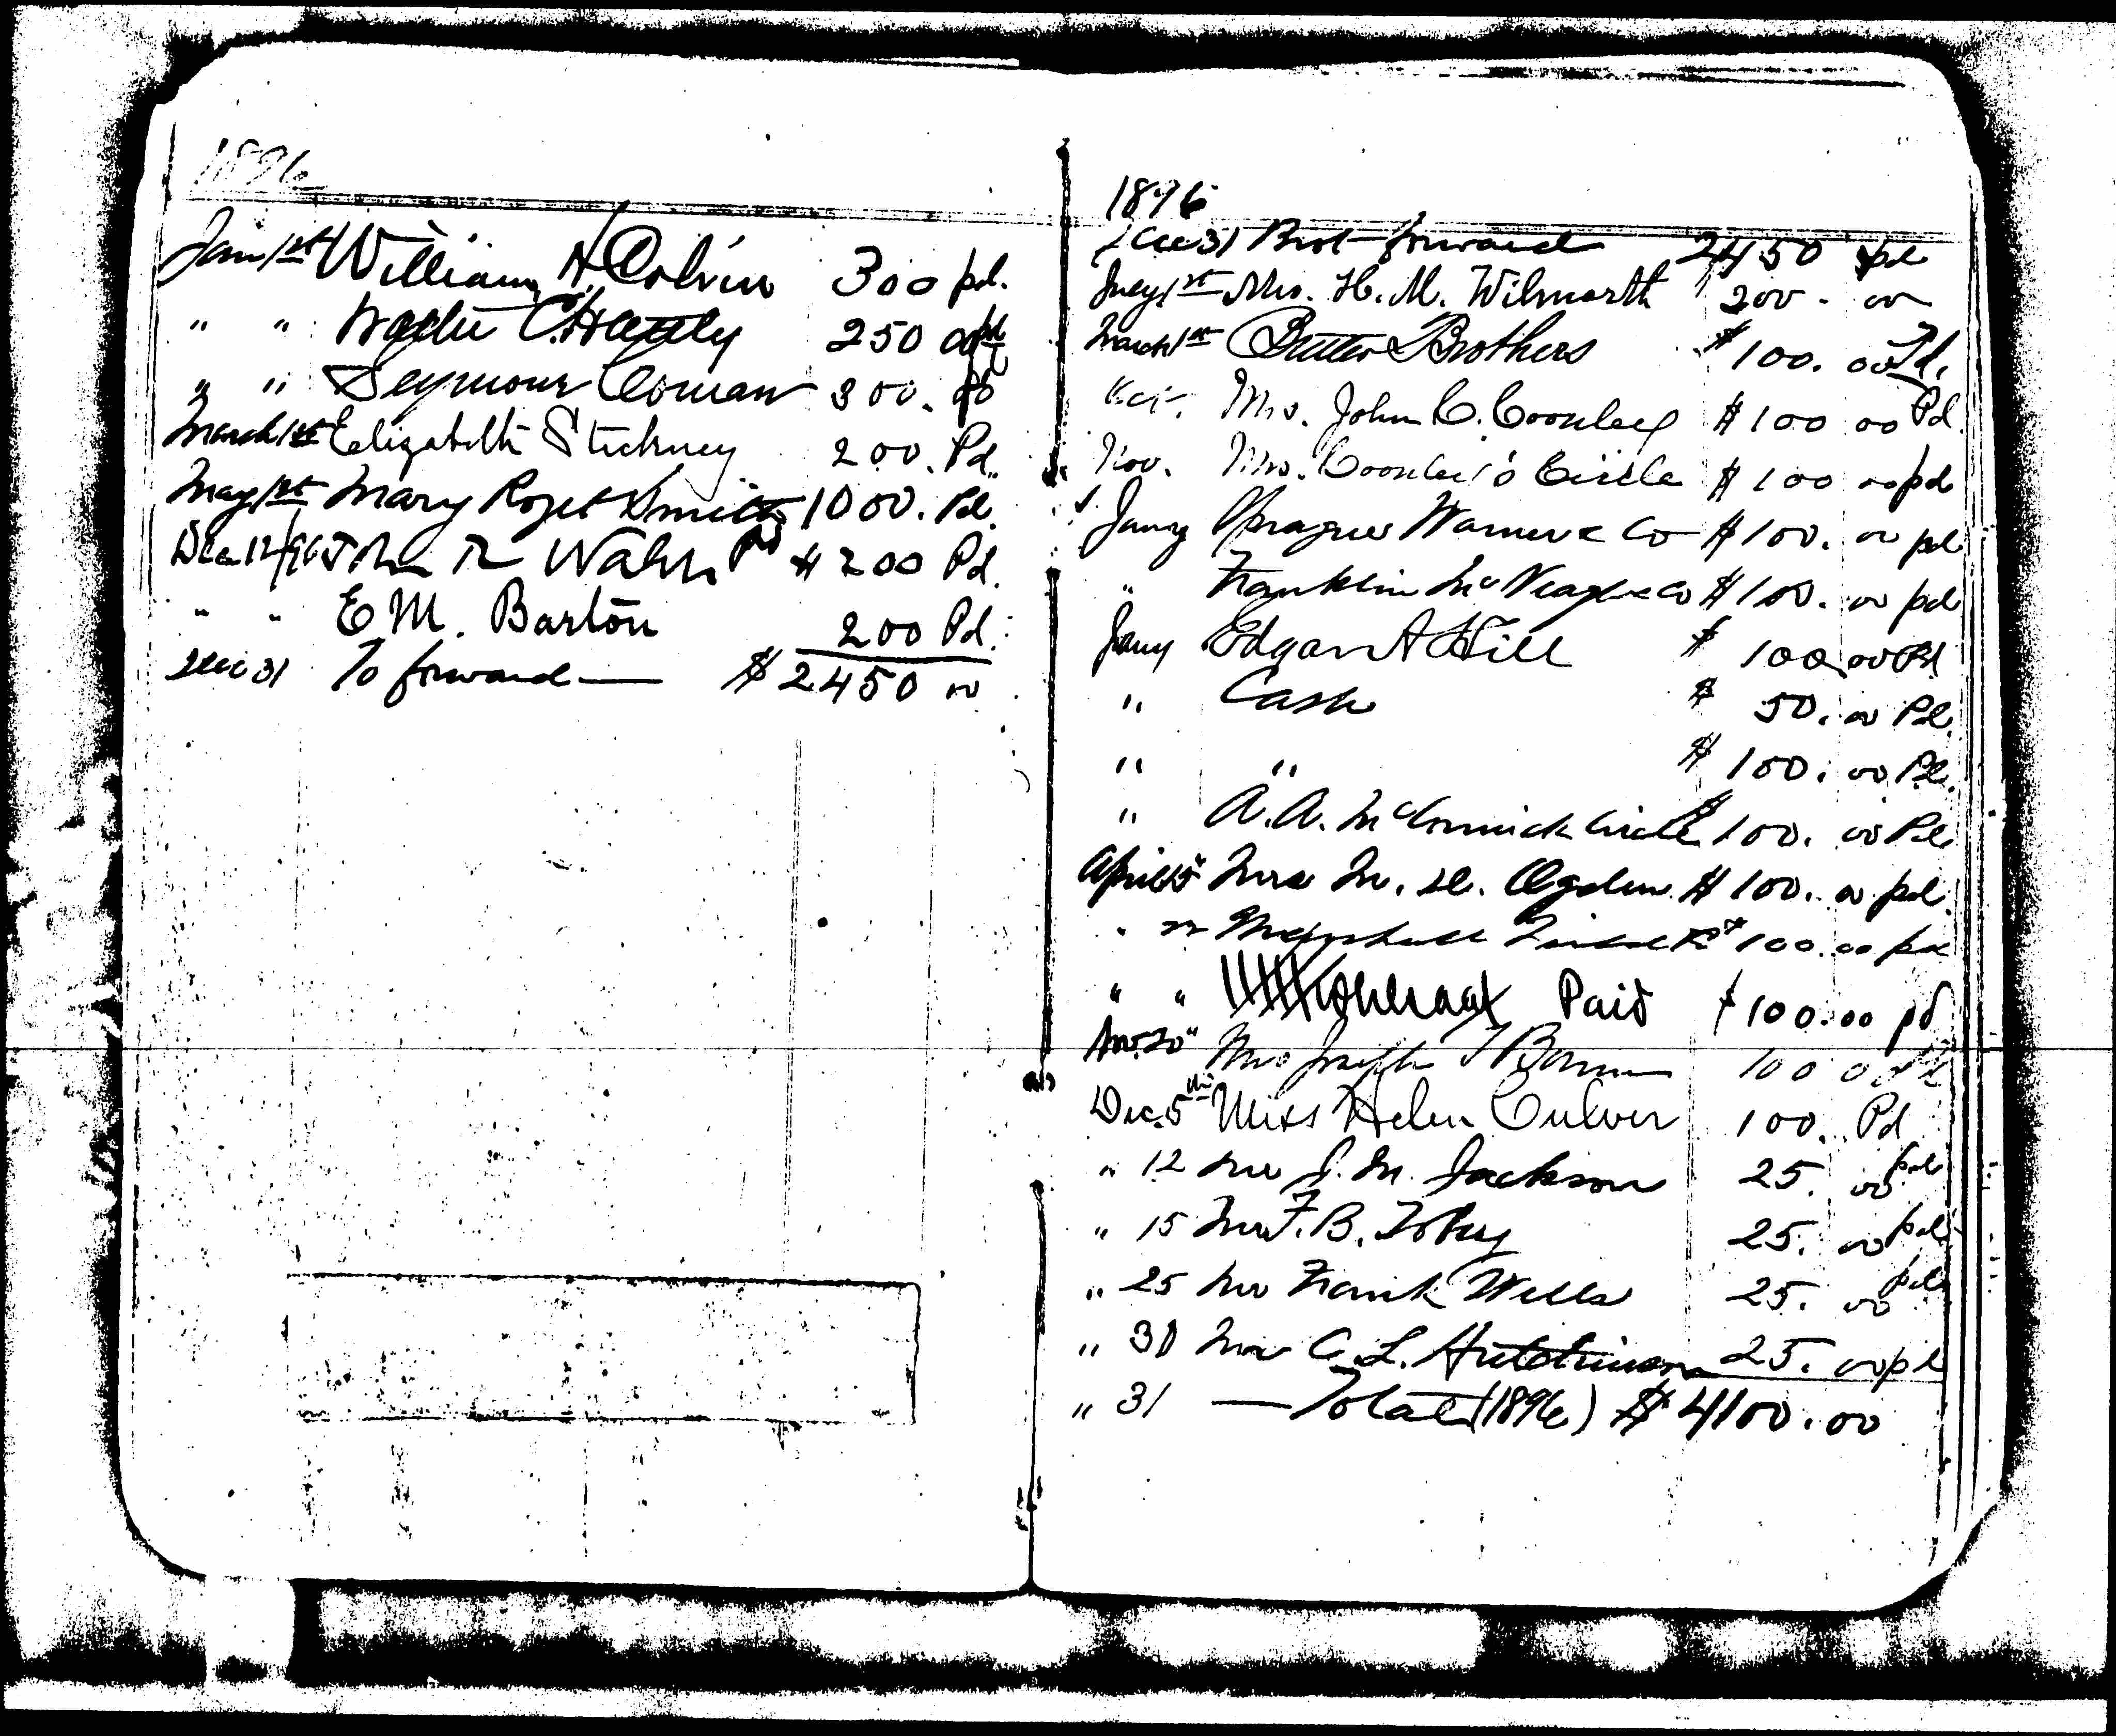 1896
Jan 1st William H Colvin 300 pd.
" " 250
" " Seymour Coman 300. pd
March 1st Elizabeth Stickney 200. Pd.
May 1st Mary Rozet Smith 1000. Pd.
Dec 12/96 John R Walsh Pd $200 Pd.
" " E M. Barton 200 Pd.
Dec 31 To forward — $2450 00
1896
Dec 31 Brot forward 2450 pd
July 1st Mrs. H. M. Wilmarth 200 - 00
March 1st Butler Brothers $100. 00 Pd.
Mrs. John C. Coonley $100 00 Pd.
Nov. Mrs. Coonley's Circle $100 00 pd
Jany Sprague Warner & Co $100. 00 pd
" Franklin McVeagh & Co $100. 00 pd
Jany Edgar A Hill $100.00 Pd
" Cash $50. 00 Pd.
" " $100. 00 Pd.
" A. A. McCormick Circle $100. 00 Pd
April 15 Mrs M. D. Ogden $100. 00 pd.
" " Marshall Field $100.00 pd
" " Paid $100.00 pd
Nov. 20" Mrs Joseph T Bowen 100 00
Dec. 5th Miss Helen Culver 100. Pd
" 12 Mrs J. M. Jackson 25. 00 pd
" 15 Mrs F. B. Tobey 25. 00 pd
" 25 Mrs Frank Wells 25. 00 pd
" 30 Mrs C. L. Hutchinson 25. 00 pd
" 31 — Total (1896) $4100.00